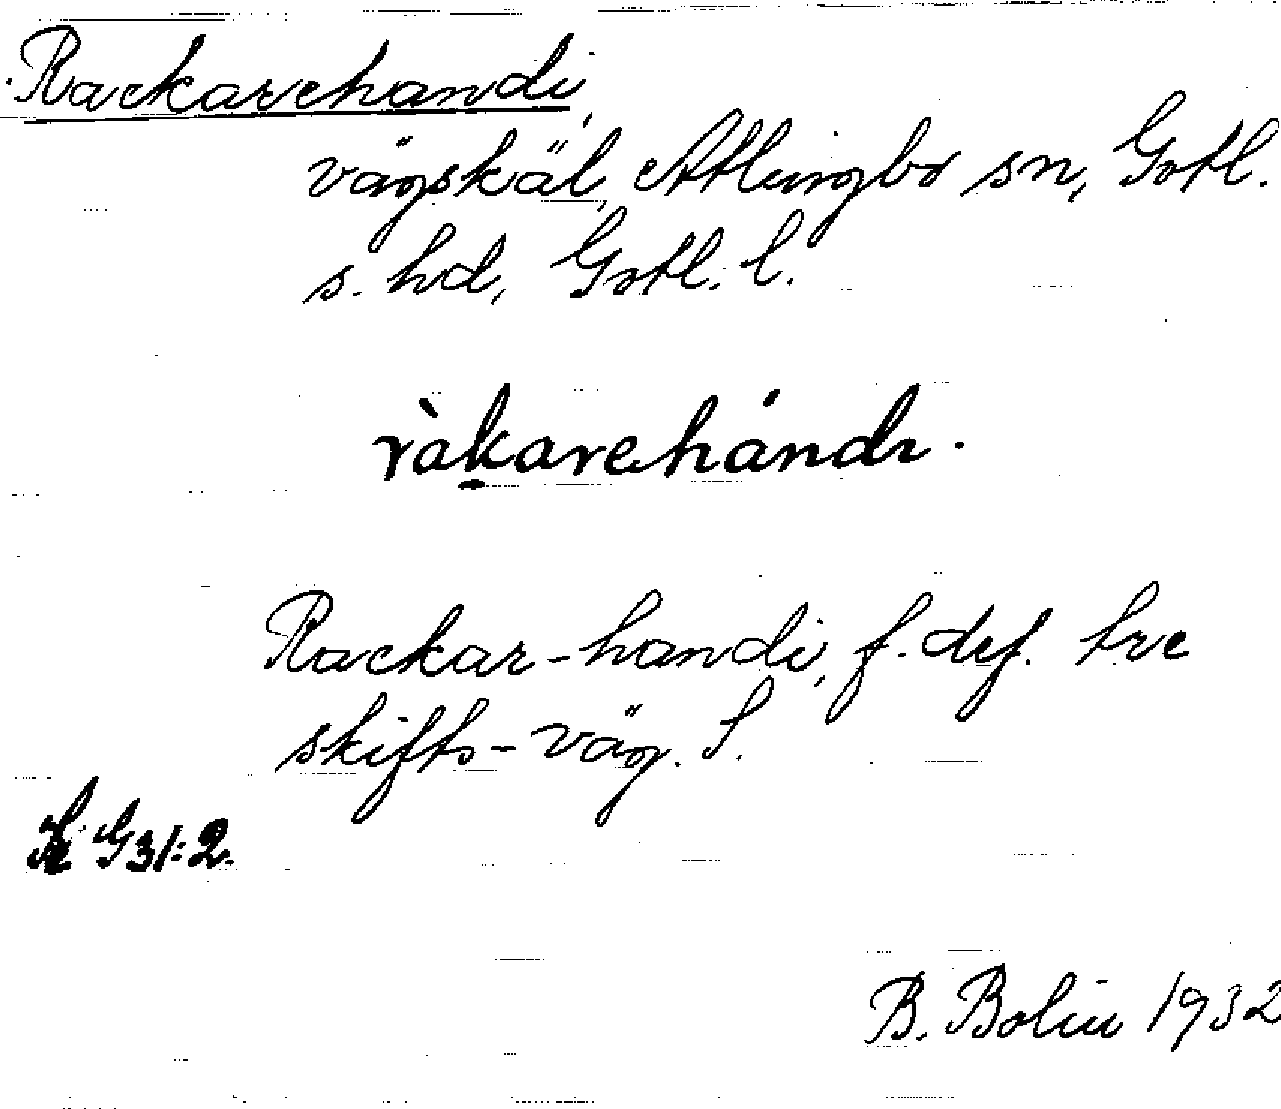 Rackarehandi,
vägskäl, Atlingbo sn, Gotl.
s. hd, Gotl. l.
ràkarehándı.
Rackar-handi, f. def. tre
skifts-väg. S.
G 31:2.
B. Bolin 1932